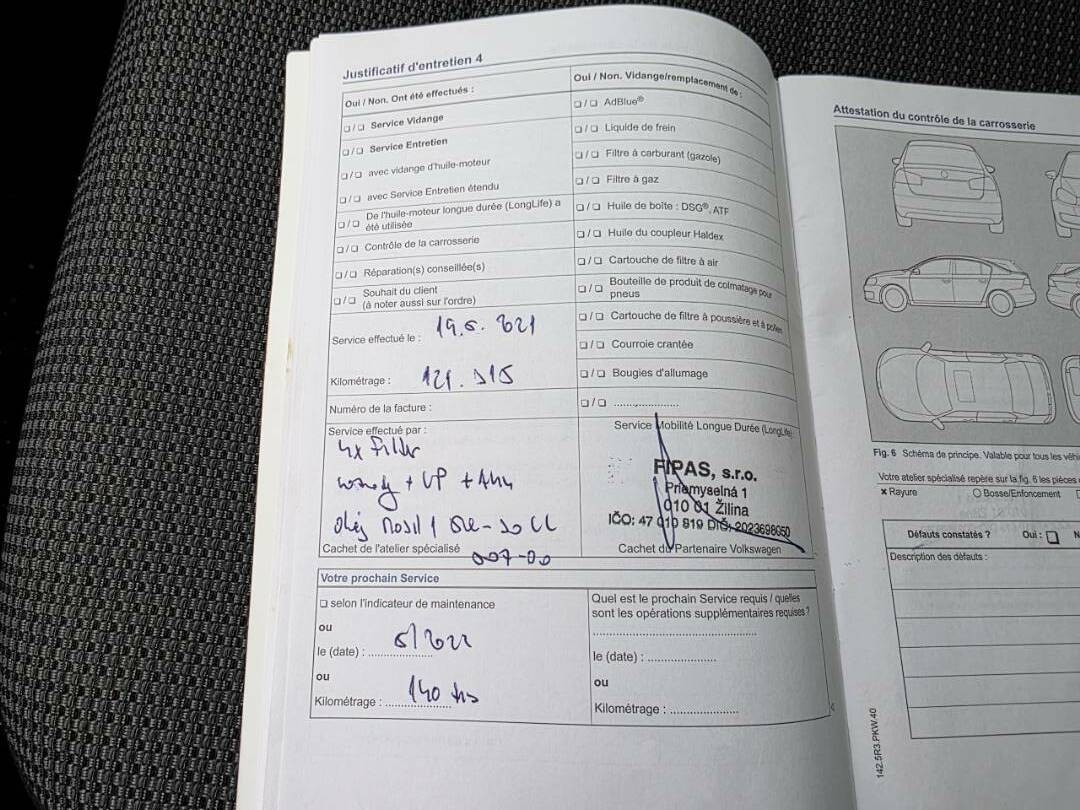 Justificatif d'entretien 4
Oui / Non. Ont été effectués :
❏ / ❏ Service Vidange
❏ / ❏ Service Entretien
❏ / ❏ avec vidange d'huile-moteur
❏ / ❏ avec Service Entretien étendu
❏ / ❏ De l'huile-moteur longue durée (LongLife) a
été utilisée
❏ / ❏ Contrôle de la carrosserie
❏ / ❏ Réparation(s) conseillée(s)
❏ / ❏ Souhait du client
(à noter aussi sur l'ordre)
Service effectué le :
Kilométrage :
Numéro de la facture :
Service effectué par :
4x Filter
olej
Cachet de l'atelier spécialisé
Oui / Non. Vidange/remplacement de :
❏ / ❏ AdBlue®
❏ / ❏ Liquide de frein
❏ / ❏ Filtre à carburant (gazole)
❏ / ❏ Filtre à gaz
❏ / ❏ Huile de boîte : DSG®, ATF
❏ / ❏ Huile du coupleur Haldex
❏ / ❏ Cartouche de filtre à air
❏ / ❏ Bouteille de produit de colmatage pour
pneus
❏ / ❏ Cartouche de filtre à poussière et à pollen
❏ / ❏ Courroie crantée
❏ / ❏ Bougies d'allumage
❏ / ❏ .....................
Service Mobilité Longue Durée (LongLife)
FIPAS, s.r.o.
Priemyselná 1
010 01 Žilina
IČO: 47 010 819 DIČ: 2023698050
Cachet du Partenaire Volkswagen
Votre prochain Service
❏ selon l'indicateur de maintenance
ou
le (date) :
ou
Kilométrage : 140
Quel est le prochain Service requis / quelles
sont les opérations supplémentaires requises ?
le (date) : .....................
ou
Kilométrage : .....................
Attestation du contrôle de la carrosserie
Fig. 6 Schéma de principe. Valable pour tous les
Votre atelier spécialisé repère sur la fig. 6 les pièces
× Rayure ○ Bosse/Enfoncement
Défauts constatés ? Oui : ❏
Description des défauts :
142.5R3.PKW.40